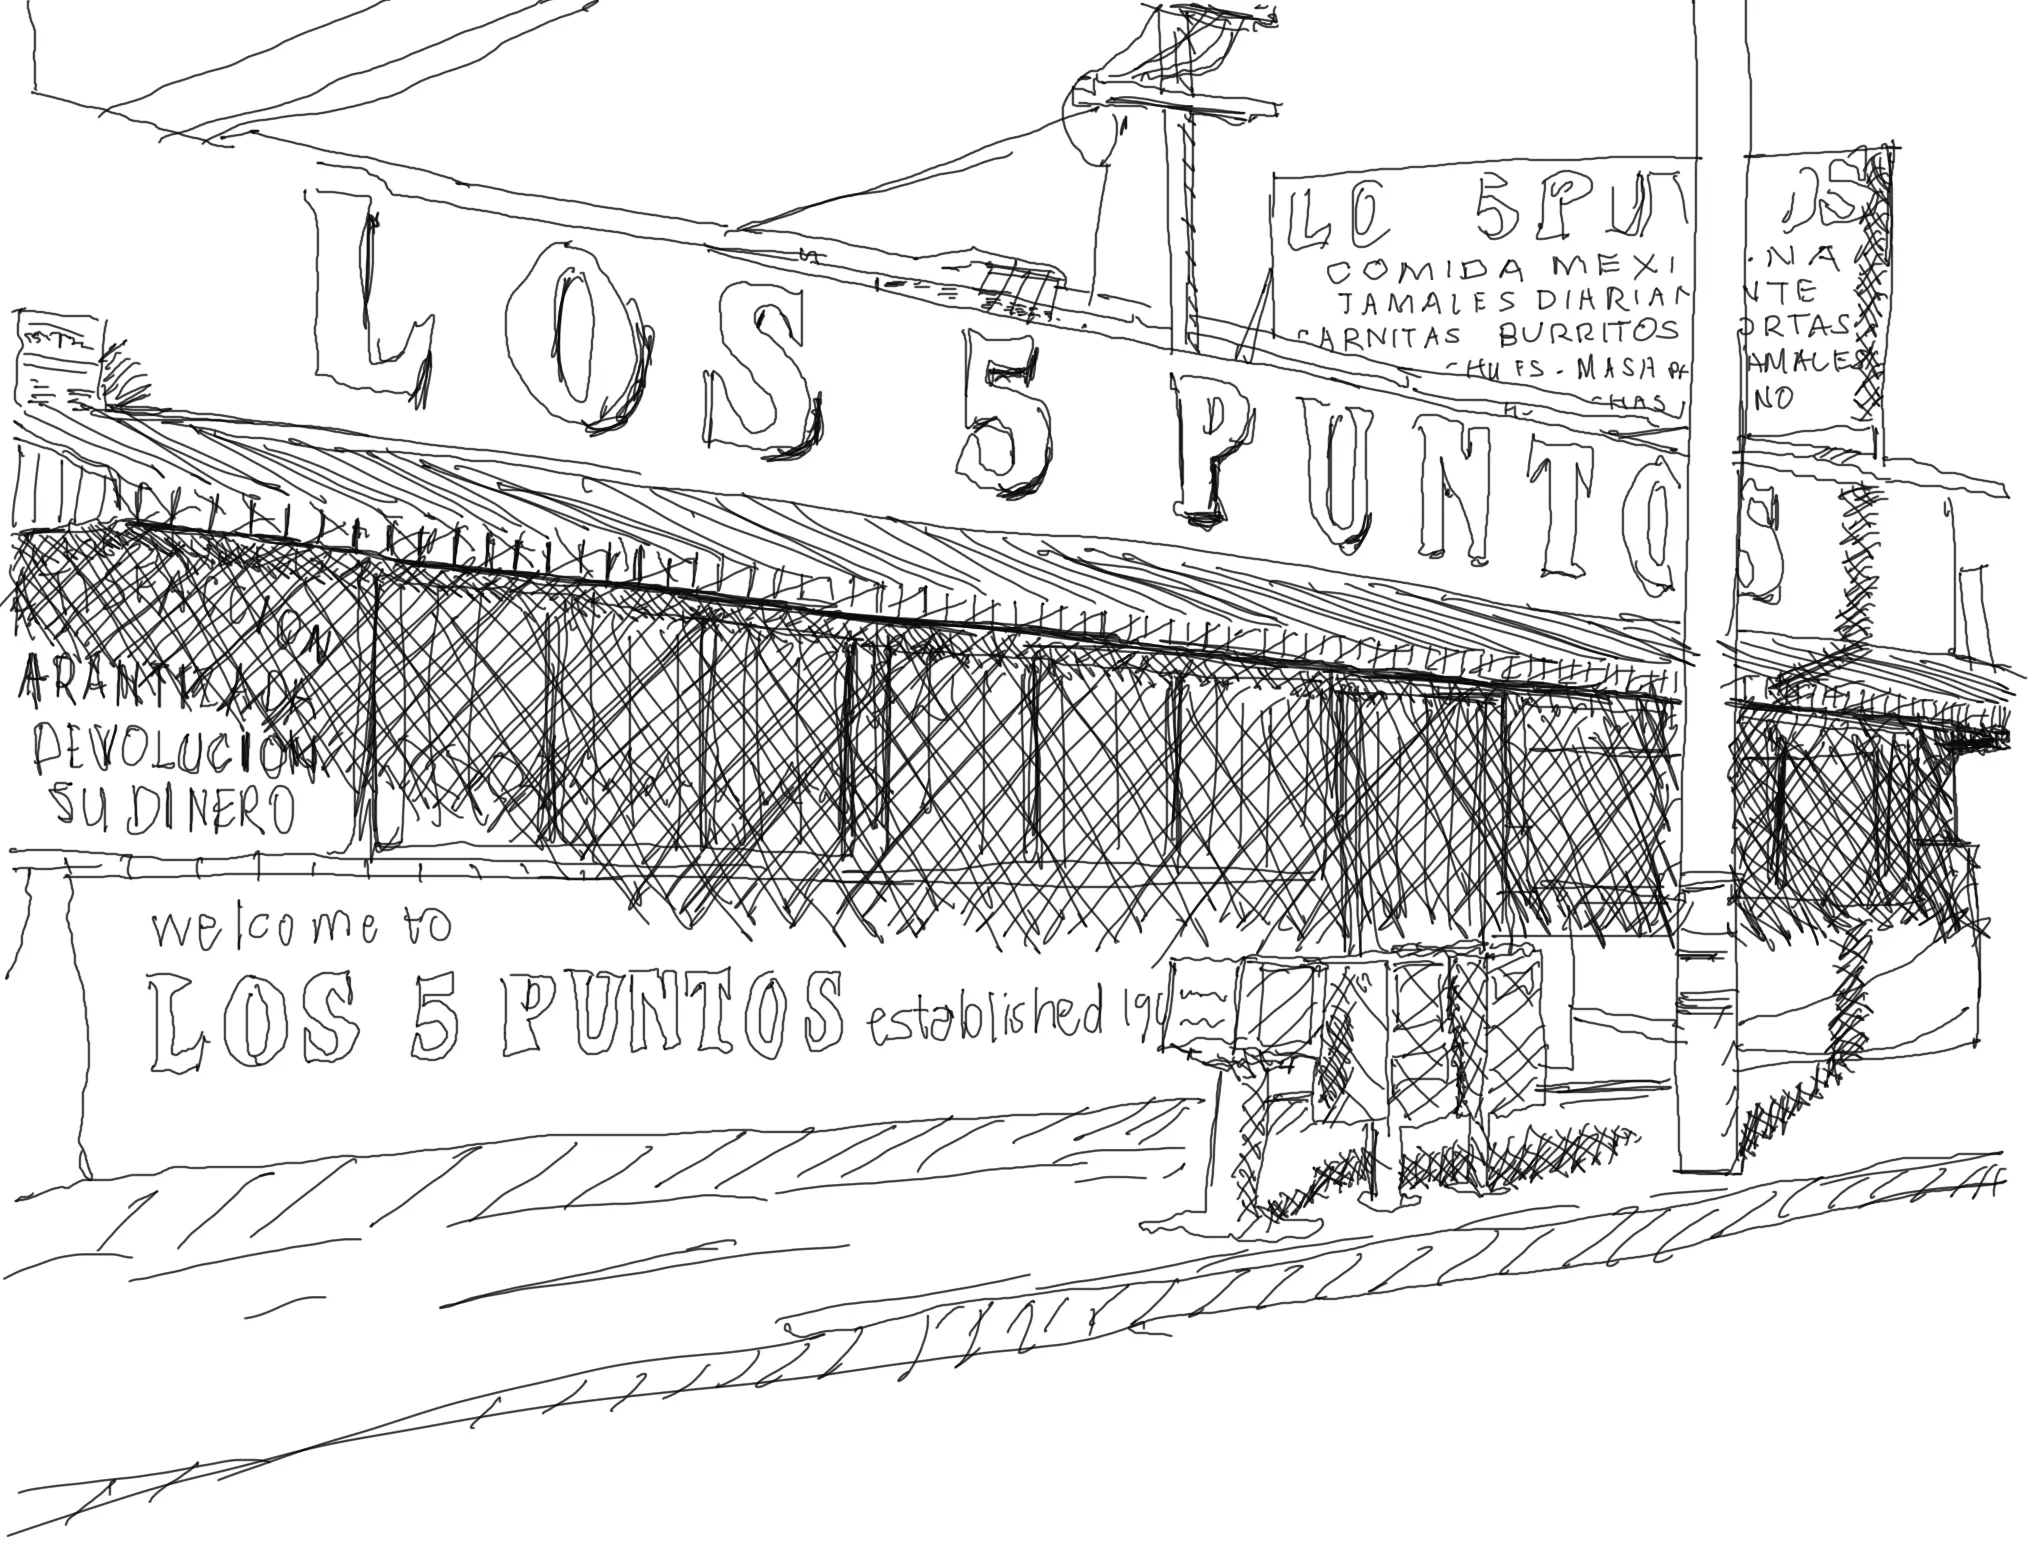 LOS 5 PUNTOS
LO 5 PUN OS
COMIDA MEXI NA
TAMALES DIARIAM NTE
CARNITAS BURRITOS ORTAS
MASA AMALES
CHAS NO
CION
ARANTIZADA
DEVOLUCION
SU DINERO
welcome to
LOS 5 PUNTOS established 19